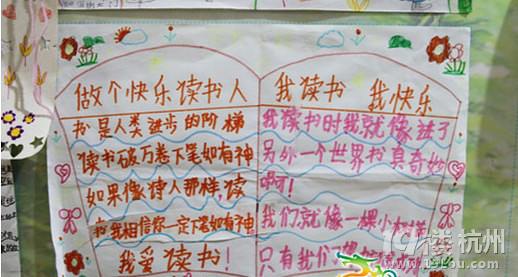 做个快乐读书人
书是人类进步的阶梯
读书破万卷下笔如有神
如果像诗人那样,读
书我相信你一定下笔如有神
我爱读书!
我读书 我快乐
我读书时我就像进了
另外一个世界书真奇妙
啊!
我们就像一棵小树样
只有我们
19楼杭州